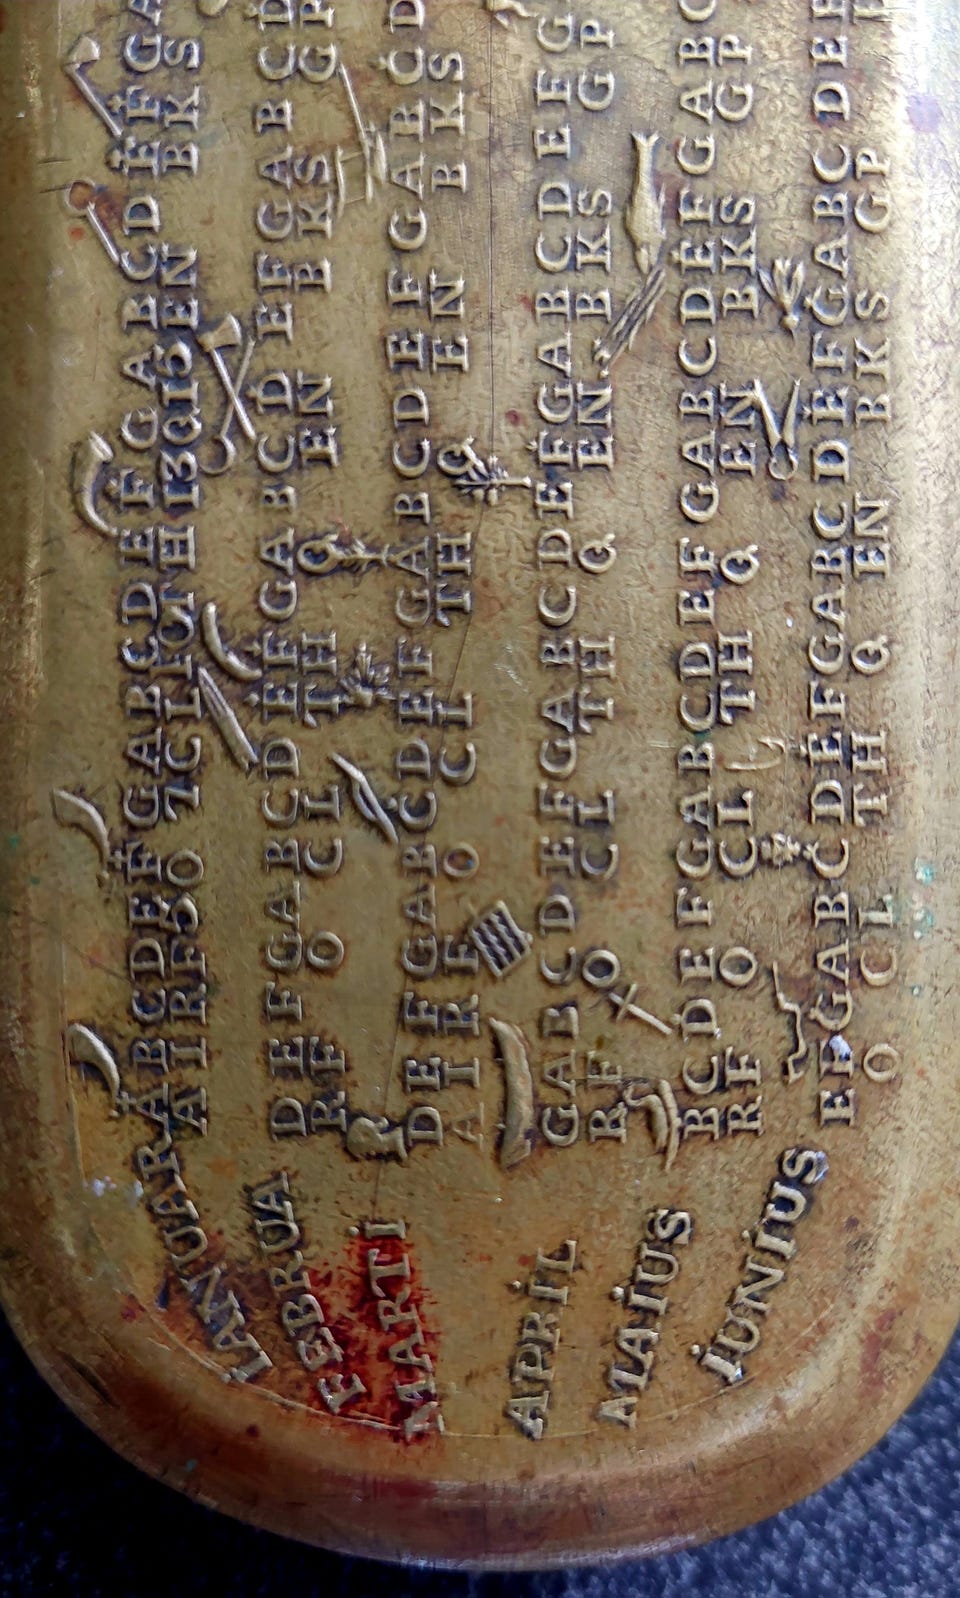 İANUAR ABCDEFGABCDEFGABCDEFGABCDEFGA
AIRF30 7CL TH13Q15EN BKS
FEBRUA DEFGABCDEFGABCDEFGABCDEFGABCD
RF O CL TH Q EN BKS GP
MARTİ DEFGABCDEFGABCDEFGABCDEFGABCD
AIRF O CL TH Q EN BKS
APRİL GABCDEFGABCDEFGABCDEFGABCDEFG
RF O CL TH Q EN BKS GP
MAİUS BCDEFGABCDEFGABCDEFGABCDEFGABC
RF O CL TH Q EN BKS GP
İUNİUS EFGABCDEFGABCDEFGABCDEFGABCDEF
O CL TH Q EN BKS GP